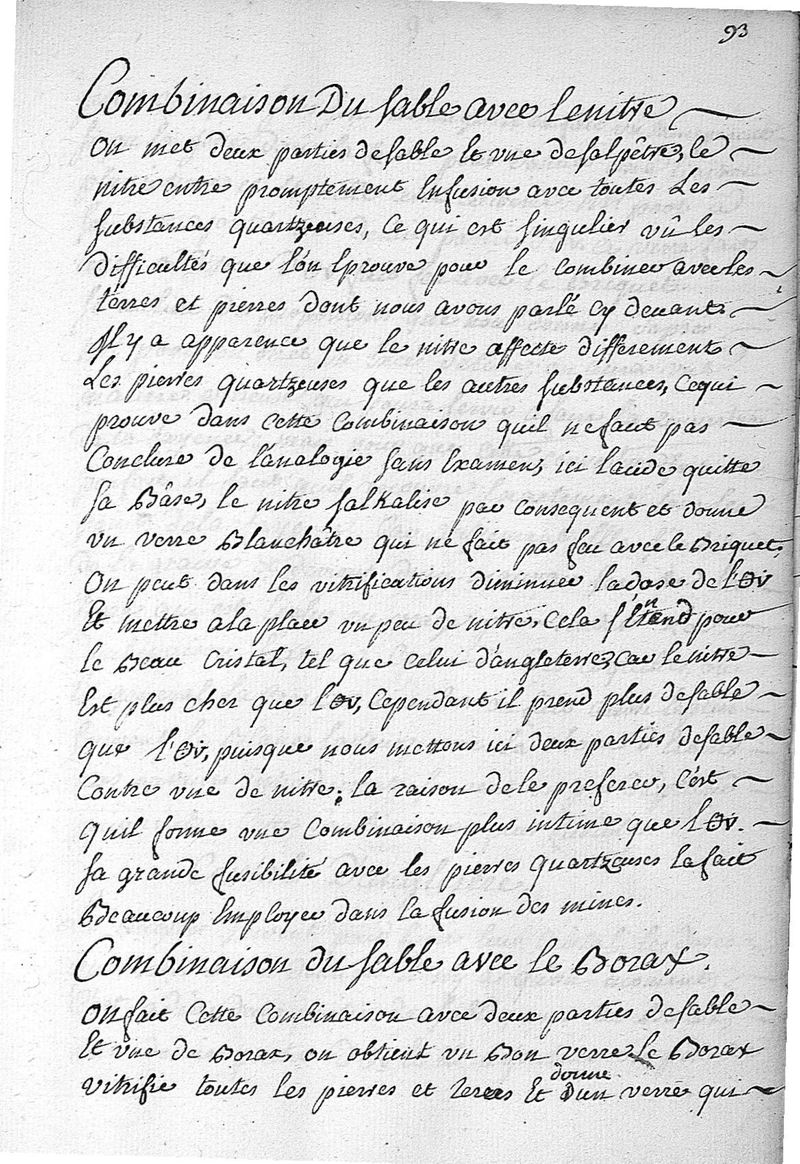 93
Combinaison Du sable avec lenitre
On met deux parties de sable Et vne de salpêtre, le
nitre entre promptement En fusion avec toutes Les
substances quartzeuses, ce qui est singulier vû les
difficultés que l'on Eprouve pour le combiner avec les
terres et pierres dont nous avons parlé cy devant.
Il y a apparence que le nitre affecte differement
Les pierres quartzeuses que les autres substances, Cequi
prouve dans cette combinaison quil ne faut pas
Conclure de l'analogie sans Examen, ici lacide quitte
sa Bâse, le nitre salkalise par consequent et donne
vn verre Blanchâtre qui ne fait pas feu avec le Briquet.
On peut dans les vitrifications diminuer la dose de l'
Et mettre a la place vn peu de nitre. Cela sentend pour
le Beau Cristal, tel que celui d'angleterre, car le nitre
Est plus cher que l', Cependant il prend plus de sable
que l', puisque nous mettons ici deux parties de sable
Contre vne de nitre; la raison de le preferer, C'est
quil forme vne Combinaison plus intime que l'
sa grande fusibilité avec les pierres quartzeuses la fait
Beaucoup Employer dans la fusion des mines.
Combinaison du sable avec le Borax.
On fait Cette Combinaison avec deux parties de sable
Et vne de Borax, on obtient vn Bon verre, le Borax
vitrifie toutes les pierres et terres Et donne un verre qui